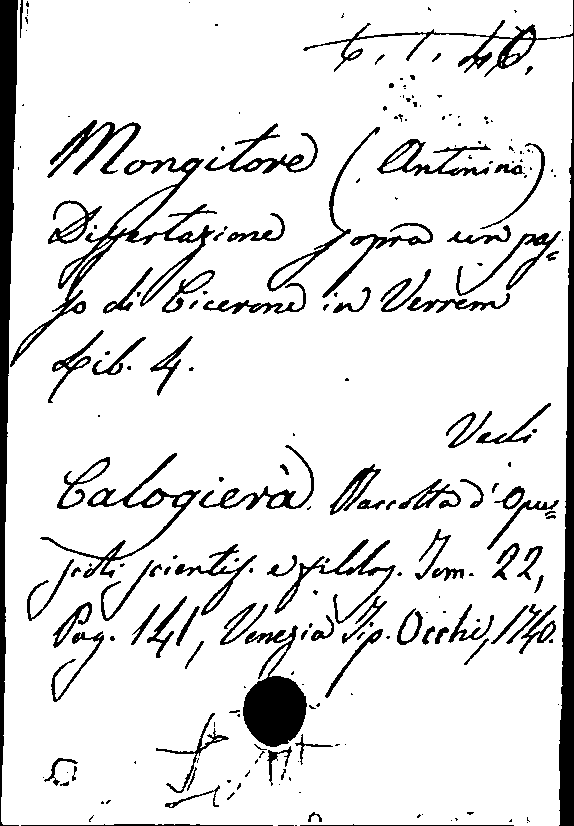 6. 1. 40.
Mongitore (Antonino)
Dissertazione sopra un pas=
so di Cicerone in Verrem
Lib. 4.
Vedi
Calogierà Raccolta d'Opus=
coli scientif. e filolog. Tom. 22,
Pag. 141, Venezia Tip. Occhi, 1740.